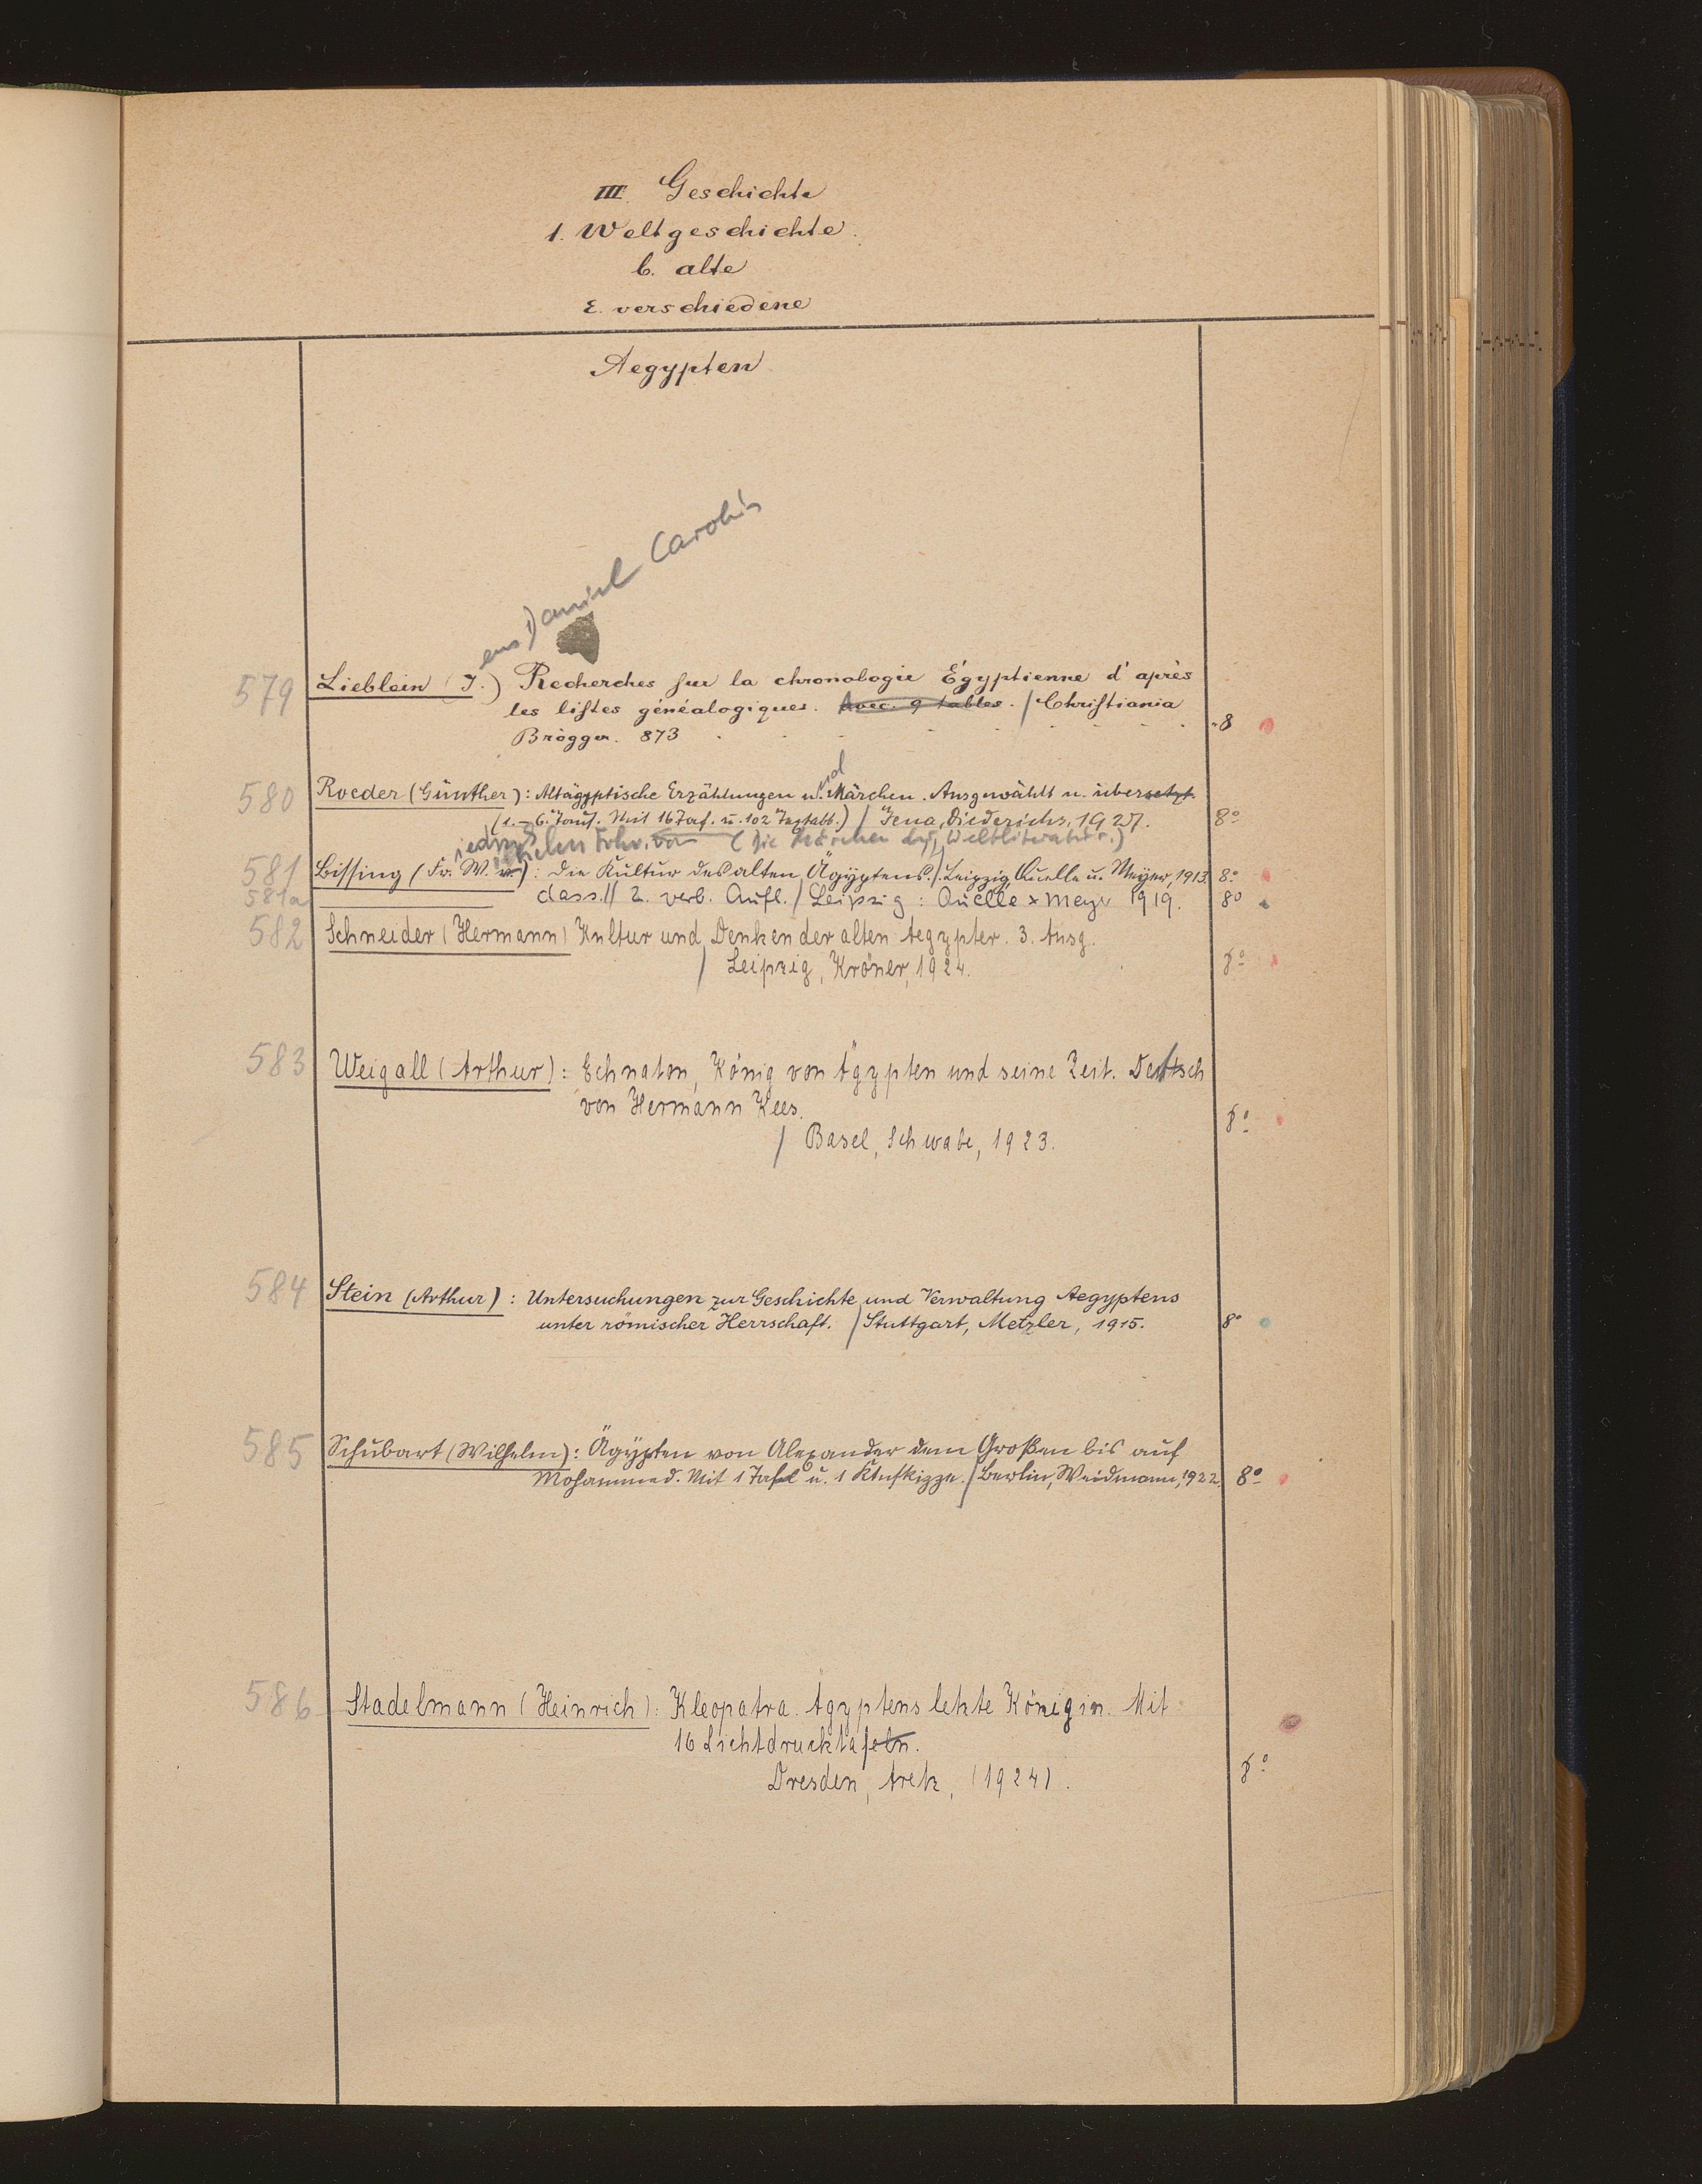 III. Geschichte
1. Weltgeschichte.
b. alte
ε. verschiedene
Aegypten
ens Daniel Carolis
579 Lieblein (J.) Recherches sur la chronologie Égyptienne d'après
les listes généalogiques. Avec. 9 tables. / Christiania
Brögger. 873 8
580 Roeder (Günther): Altägyptische Erzählungen und Märchen. Ausgewählt u. übersetzt
(1.-6. Taus. Mit 16 Taf. u. 102 Textabb.) / Jena, Diederichs, 1927. 8°
iedrich ilhelm Frhr. von (Die Märchen der Weltliteratur.)
581 Bissing (Fr. W. v.): Die Kultur des alten Ägyptens. / Leipzig, Quelle u. Meyer, 1913. 8°
581a dass. // 2. verb. Aufl. / Leipzig: Quelle & Meyer 1919. 8°
582 Schneider (Hermann) Kultur und Denken der alten Aegypter. 3. Ausg.
/ Leipzig, Kröner, 1924. 8°
583 Weigall (Arthur): Echnaton, König von Ägypten und seine Zeit. Deutsch
von Hermann Kees.
/ Basel, Schwabe, 1923. 8°
584 Stein (Arthur): Untersuchungen zur Geschichte und Verwaltung Aegyptens
unter römischer Herrschaft. / Stuttgart, Metzler, 1915. 8°
585 Schubart (Wilhelm): Ägypten von Alexander dem Großen bis auf
Mohammed. Mit 1 Tafel u. 1 Ktnskizze. / Berlin, Weidmann, 1922. 8°
586 Stadelmann (Heinrich): Kleopatra. Ägyptens letzte Königin. Mit
16 Lichtdrucktafeln.
Dresden, Aretz, (1924). 8°